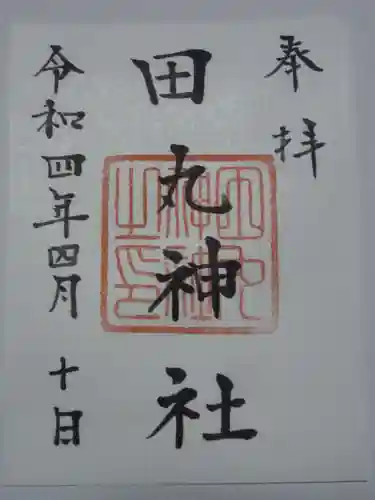 奉拝
田丸神社
令和四年四月十日